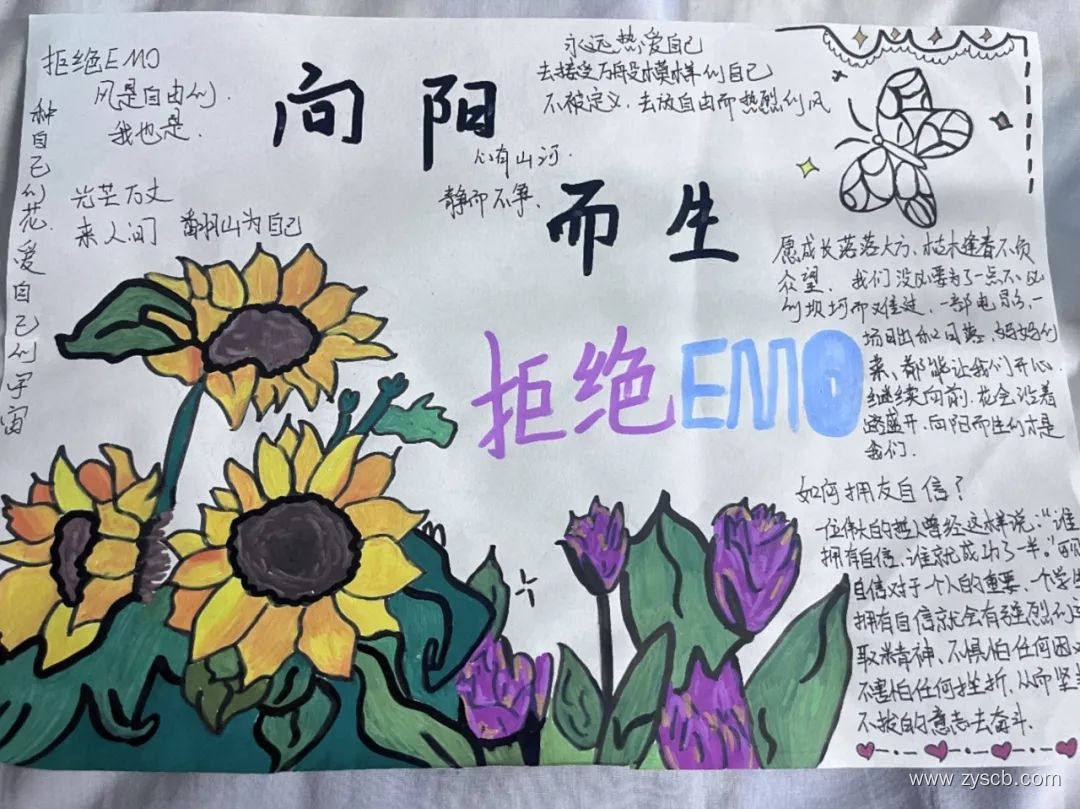 拒绝EMO
风是自由的.
我也是.
种自己的花爱自己的宇宙
光芒万丈
来人间 翻山为自己
向阳
而生
心有山河.
静而不争.
永远热爱自己
去接受万般模样的自己
不被定义.去做自由而热烈的风
拒绝EMO
愿成长落落大方、枯木逢春不负
众望. 我们没必要为了一点不必
的坝坷而难过、一部电影、一
场日出和日落、好好的
来、都能让我们开心.
继续向前.花会沿着
盛开.向阳而生的才是
我们.
如何拥友自信？
一位伟大的哲人曾经这样说:“谁
拥有自信、谁就成功了一半。”
自信对于一个人的重要、一个学生
拥有自信就会有强烈的进
取米青神、不惧怕任何困
不害怕任何挫折、从而坚
不拔的意志去奋斗.
www.zyscb.com